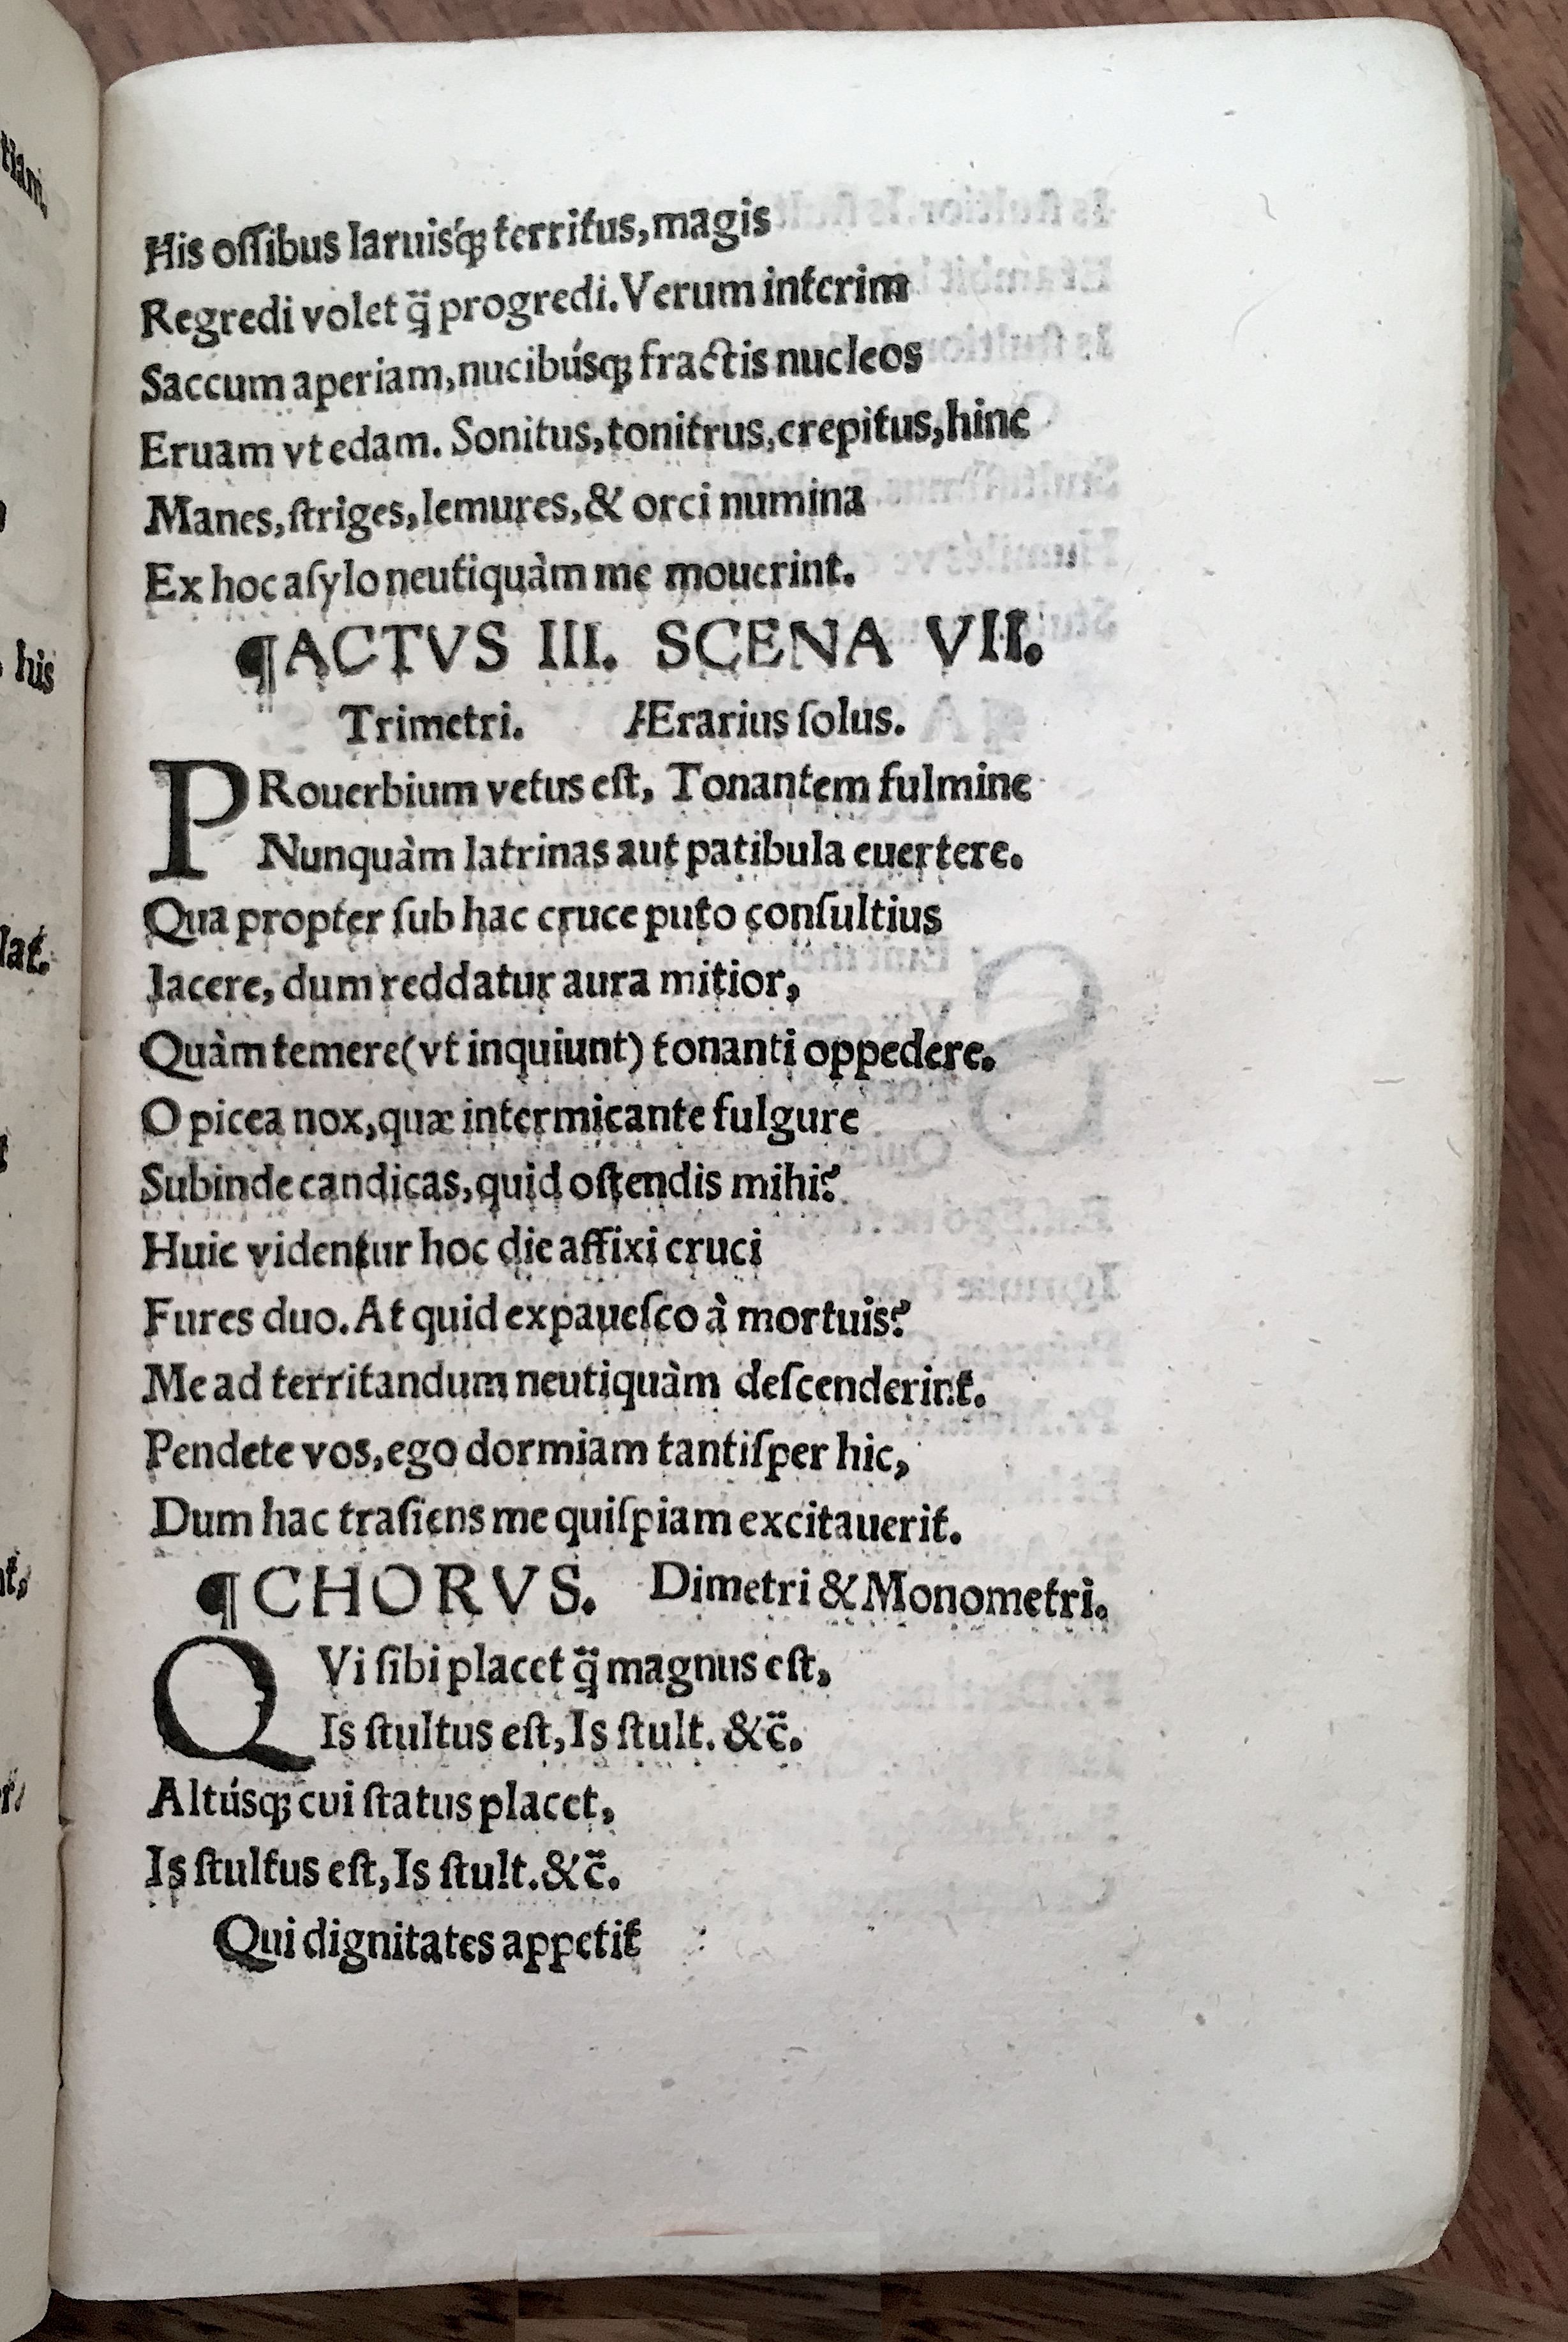 His oſſibus laruisq́ꝫ territus, magis
Regredi volet q̃̈ progredi. Verum interim
Saccum aperiam, nucibúsqꝫ fractis nucleos
Eruam vt edam. Sonitus, tonitrus, crepitus, hinc
Manes, ſtriges, lemures, & orci numina
Ex hoc aſylo neutiquàm me mouerint.
¶ACTVS III. SCENA VII.
Trimetri. Ærarius ſolus.
PRouerbium vetus eſt, Tonantem fulmine
Nunquàm latrinas aut patibula euertere.
Qua propter ſub hac cruce puto conſultius
Iacere, dum reddatur aura mitior,
Quàm temere (vt inquiunt) tonanti oppedere.
O picea nox, quæ intermicante fulgure
Subinde candicas, quid oſtendis mihi?
Huic videntur hoc die affixi cruci
Fures duo. At quid expaueſco à mortuis?
Me ad territandum neutiquàm deſcenderint.
Pendete vos, ego dormiam tantiſper hic,
Dum hac traſiens me quiſpiam excitauerit.
¶CHORVS. Dimetri & Monometri.
QVi ſibi placet q̃̈ magnus eſt,
Is ſtultus eſt, Is ſtult. &c̈.
Altúsqꝫ cui ſtatus placet,
Is ſtultus eſt, Is ſtult. &c̈.
Qui dignitates appetit